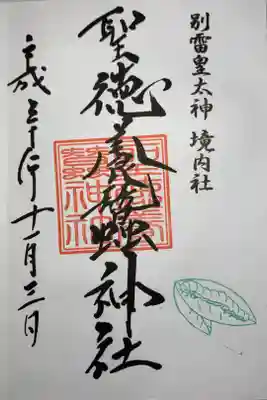 別雷皇太神 境内社
聖徳養蠶神社
平成三十年十一月三日